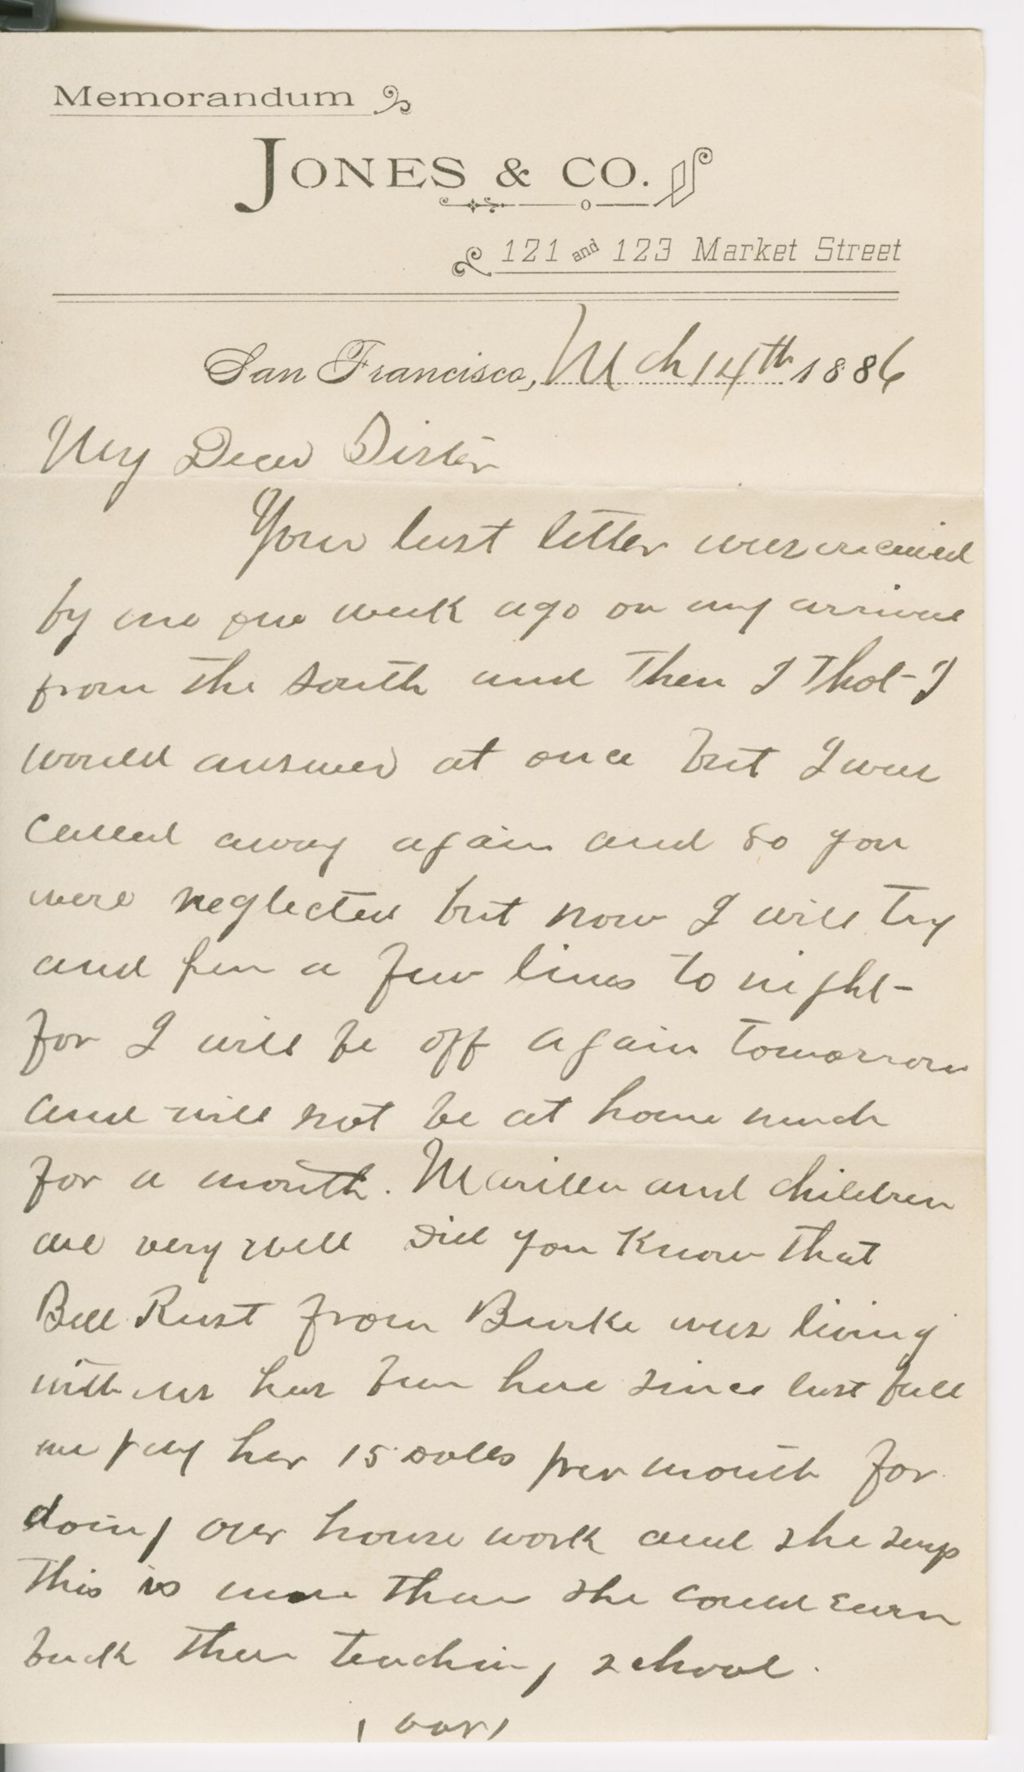 Memorandum
JONES & CO.
121 and 123 Market Street
San Francisco, Mch 14th 1886
My Dear Sister
Your last letter was received
by me one week ago on my arrival
from the south and then I thot I
would answer at once but I was
called away again and so you
were neglected but now I will try
and pen a few lines to night
for I will be off again tomorrow
and will not be at home much
for a month. Marilla and children
are very well Did you know that
Bell Rust from Burke was living
with us has been here since last fall
we pay her 15 dolls per month for
doing our house work and she says
this is more than she could earn
back there teaching school.
(over)